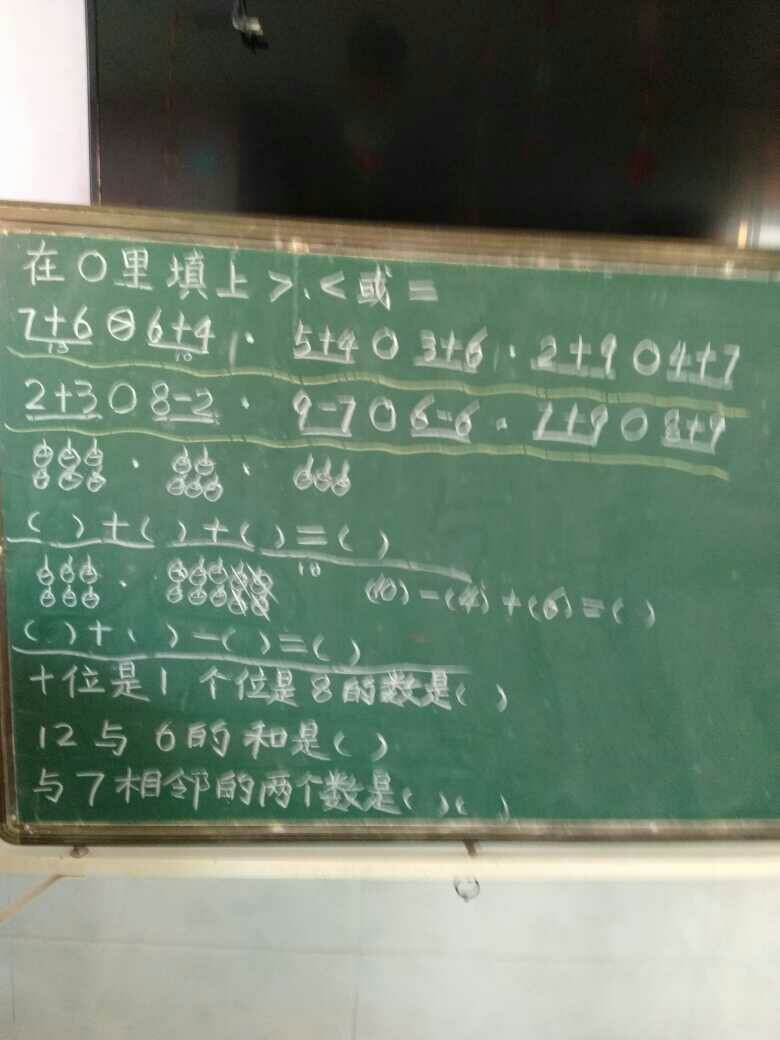 在○里填上>、<或=
7+6>6+4 . 5+4○3+6 . 2+9○4+7
13 10
2+3○8-2 . 9-7○6-6 . 7+9○8+9
( )+( )+( )=( )
10
(10)-(4)+(6)=( )
( )+( )-( )=( )
十位是1 个位是8的数是( )
12与6的和是( )
与7相邻的两个数是( )( )